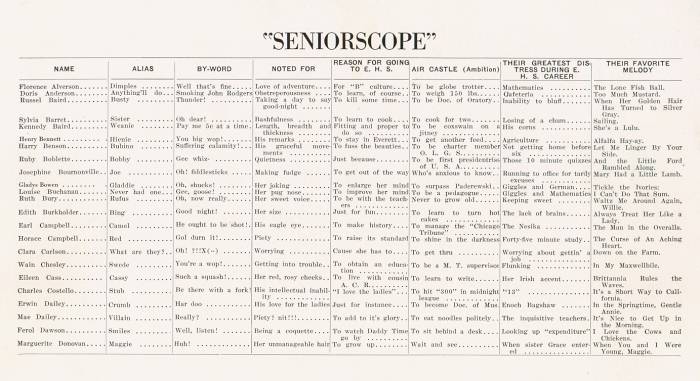 "SENIORSCOPE"
NAME ALIAS BY-WORD NOTED FOR REASON FOR GOING TO E. H. S. AIR CASTLE (Ambition) THEIR GREATEST DISTRESS DURING E. H. S. CAREER THEIR FAVORITE MELODY
Florence Alverson Dimples Well that's fine Love of adventure For "B" culture To be globe trotter Mathematics The Lone Fish Ball.
Doris Anderson Anything'll do Smoking John Rodgers Obstreperousness To learn, of course To weigh 150 lbs. Cafeteria Too Much Mustard.
Russel Baird Busty Thunder! Taking a day to say good-night To kill some time To be Doc. of Oratory Inability to bluff When Her Golden Hair Has Turned to Silver Gray.
Sylvia Barret Sister Oh dear! Bashfulness To learn to cook To cook for two Losing of a chum Sailing.
Kennedy Baird Weanie Pay me 5c at a time Length, breadth and thickness Fitting and proper to do so To be coxswain on a jitney His corns She's a Lulu.
Henry Bennett Hienie You big wop! His remarks To stay in Everett To get another feed Agriculture Alfalfa Hay-ay.
Harry Benson Bubins Suffering calamity! His graceful movements To fuss the beauties To be charter member O. L. G. S. Not getting home before six Let Me Linger By Your Side.
Ruby Boblette Bobby Gee whiz- Quietness Just because To be first presidentess of U. S. A. Those 10 minute quizzes And the Little Ford Rambled Along.
Josephine Bournonville Joe Oh! fiddlesticks Making fudge To get out of the way Who's anxious to know Running to office for tardy excuses Mary Had a Little Lamb.
Gladys Bowen Gladdie Oh, shucks! Her joking To enlarge her mind To surpass Paderewski Giggles and German Tickle the Ivories.
Louise Buchanan Never had one Gee, goose! Her pug nose To improve her mind To be a pedagogue Giggles and Mathematics I Can't Do That Sum.
Ruth Bory Rufus Oh, now really! Her sweet voice To be with the teachers Never to grow old Keeping sweet Waltz Me Around Again, Willie.
Edith Burkholder Bing Good night! Her size Just for fun To learn to turn hot cakes The lack of brains Always Treat Her Like a Lady.
Earl Campbell Camel He ought to be shot! His eagle eye To make history To manage the "Chicago Tribune" The Nesika The Man in the Overalls.
Horace Campbell Red Gol durn it! Piety To raise its standard To shine in the darkness Forty-five minute study The Curse of An Aching Heart.
Clara Carlson What are they? Oh! !!!X(—) Worrying Cause she has to To get thru Worrying about gettin' a job Down on the Farm.
Wain Chesley Swede You're a wop! Getting into trouble To obtain an education To be a M. T. supervisor Flunking In My Maxwellbile.
Eileen Cass Cassy Such a squash! Her red, rosy cheeks To live with cousin A. C. R. To learn to write Her Irish accent Brittannia Rules the Waves.
Charles Costello Stub Be there with a fork! His intellectual inability "I love the ladies" To hit "300" in midnight league "13" It's a Short Way to California.
Erwin Dailey Crumb Har doo His love for the ladies Just for instance To become Doc. of Mus. Enoch Bagshaw In the Springtime, Gentle Annie.
Mae Dailey Villain Really? Piety? nit!!! To add to it's glory To eat noodles politely The inquisitive teachers It's Nice to Get Up in the Morning.
Ferol Dawson Smiles Well, listen! Being a coquette To watch Daddy Time go by To sit behind a desk Looking up "expenditure" I Love the Cows and Chickens.
Marguerite Donovan Maggie Huh! Her unmanageable hair To grow up Wait and see When sister Grace entered When You and I Were Young, Maggie.